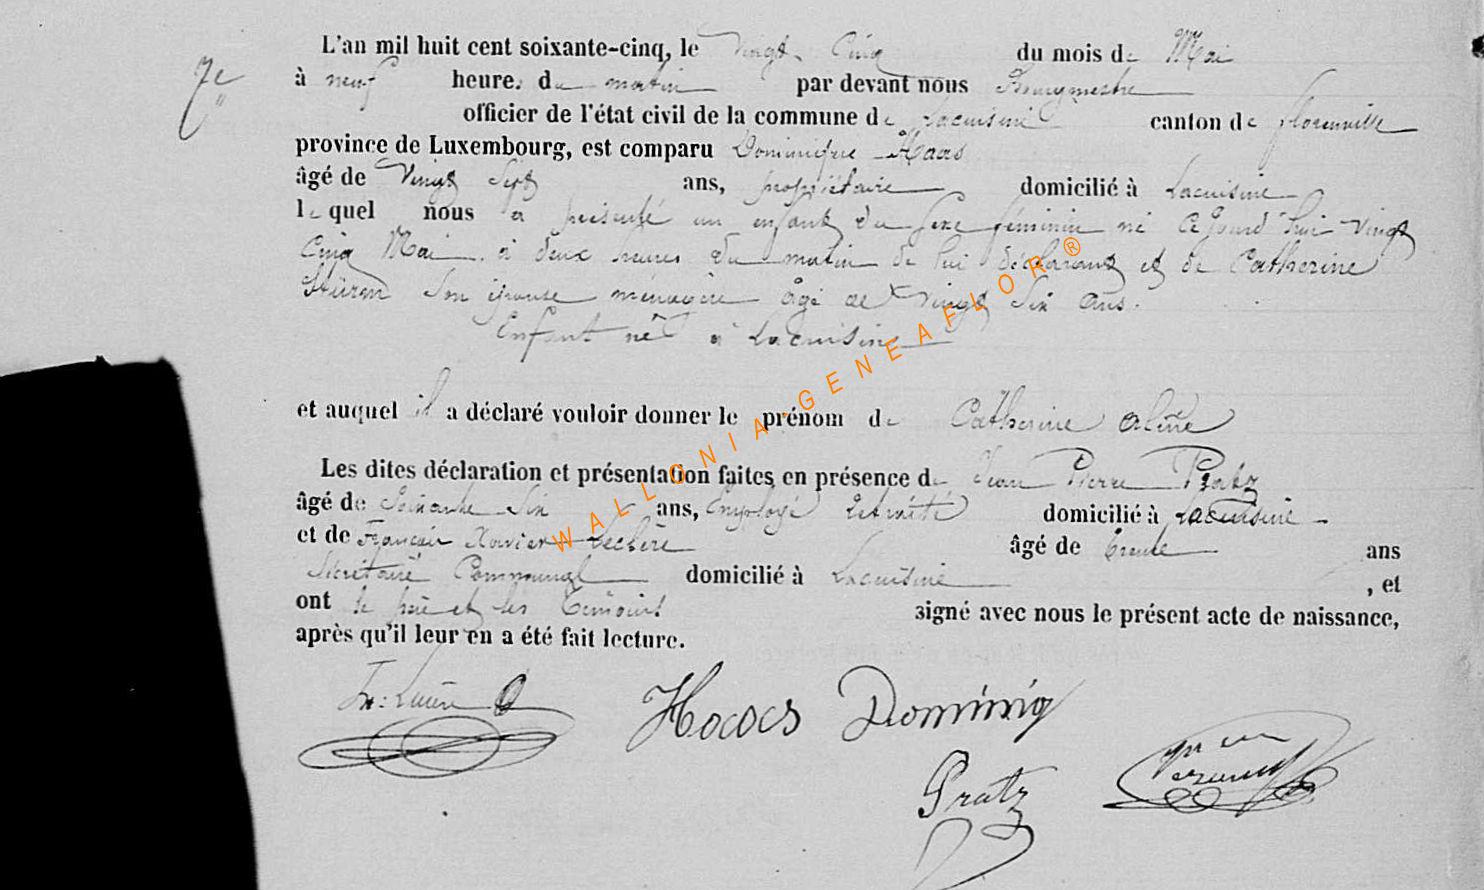 7e
L'an mil huit cent soixante-cinq, le vingt Cinq du mois de Mai
à neuf heures du matin par devant nous Bourgmestre
officier de l'état civil de la commune de Lacuisine canton de florenville
province de Luxembourg, est comparu Dominique Haas
âgé de Vingt Sept ans, propriétaire domicilié à Lacuisine
lequel nous a présenté un enfant du sexe féminin né ce jourd'hui vingt
Cinq Mai à deux heures du matin de lui déclarant et de Catherine
Sturm son épouse ménagère âgé de vingt six ans.
Enfant né à Lacuisine
et auquel il a déclaré vouloir donner le prénom de Catherine Aline
Les dites déclaration et présentation faites en présence de Jean Pierre Pratz
âgé de Soixante Six ans, Employé retraité domicilié à Lacuisine
et de François Xavier Leclère âgé de trente ans
Secrétaire Communal domicilié à Lacuisine , et
ont le père et les témoins signé avec nous le présent acte de naissance,
après qu'il leur en a été fait lecture.
Haas Dominiq
Pratz
WALLONIA-GENEAFLOR®